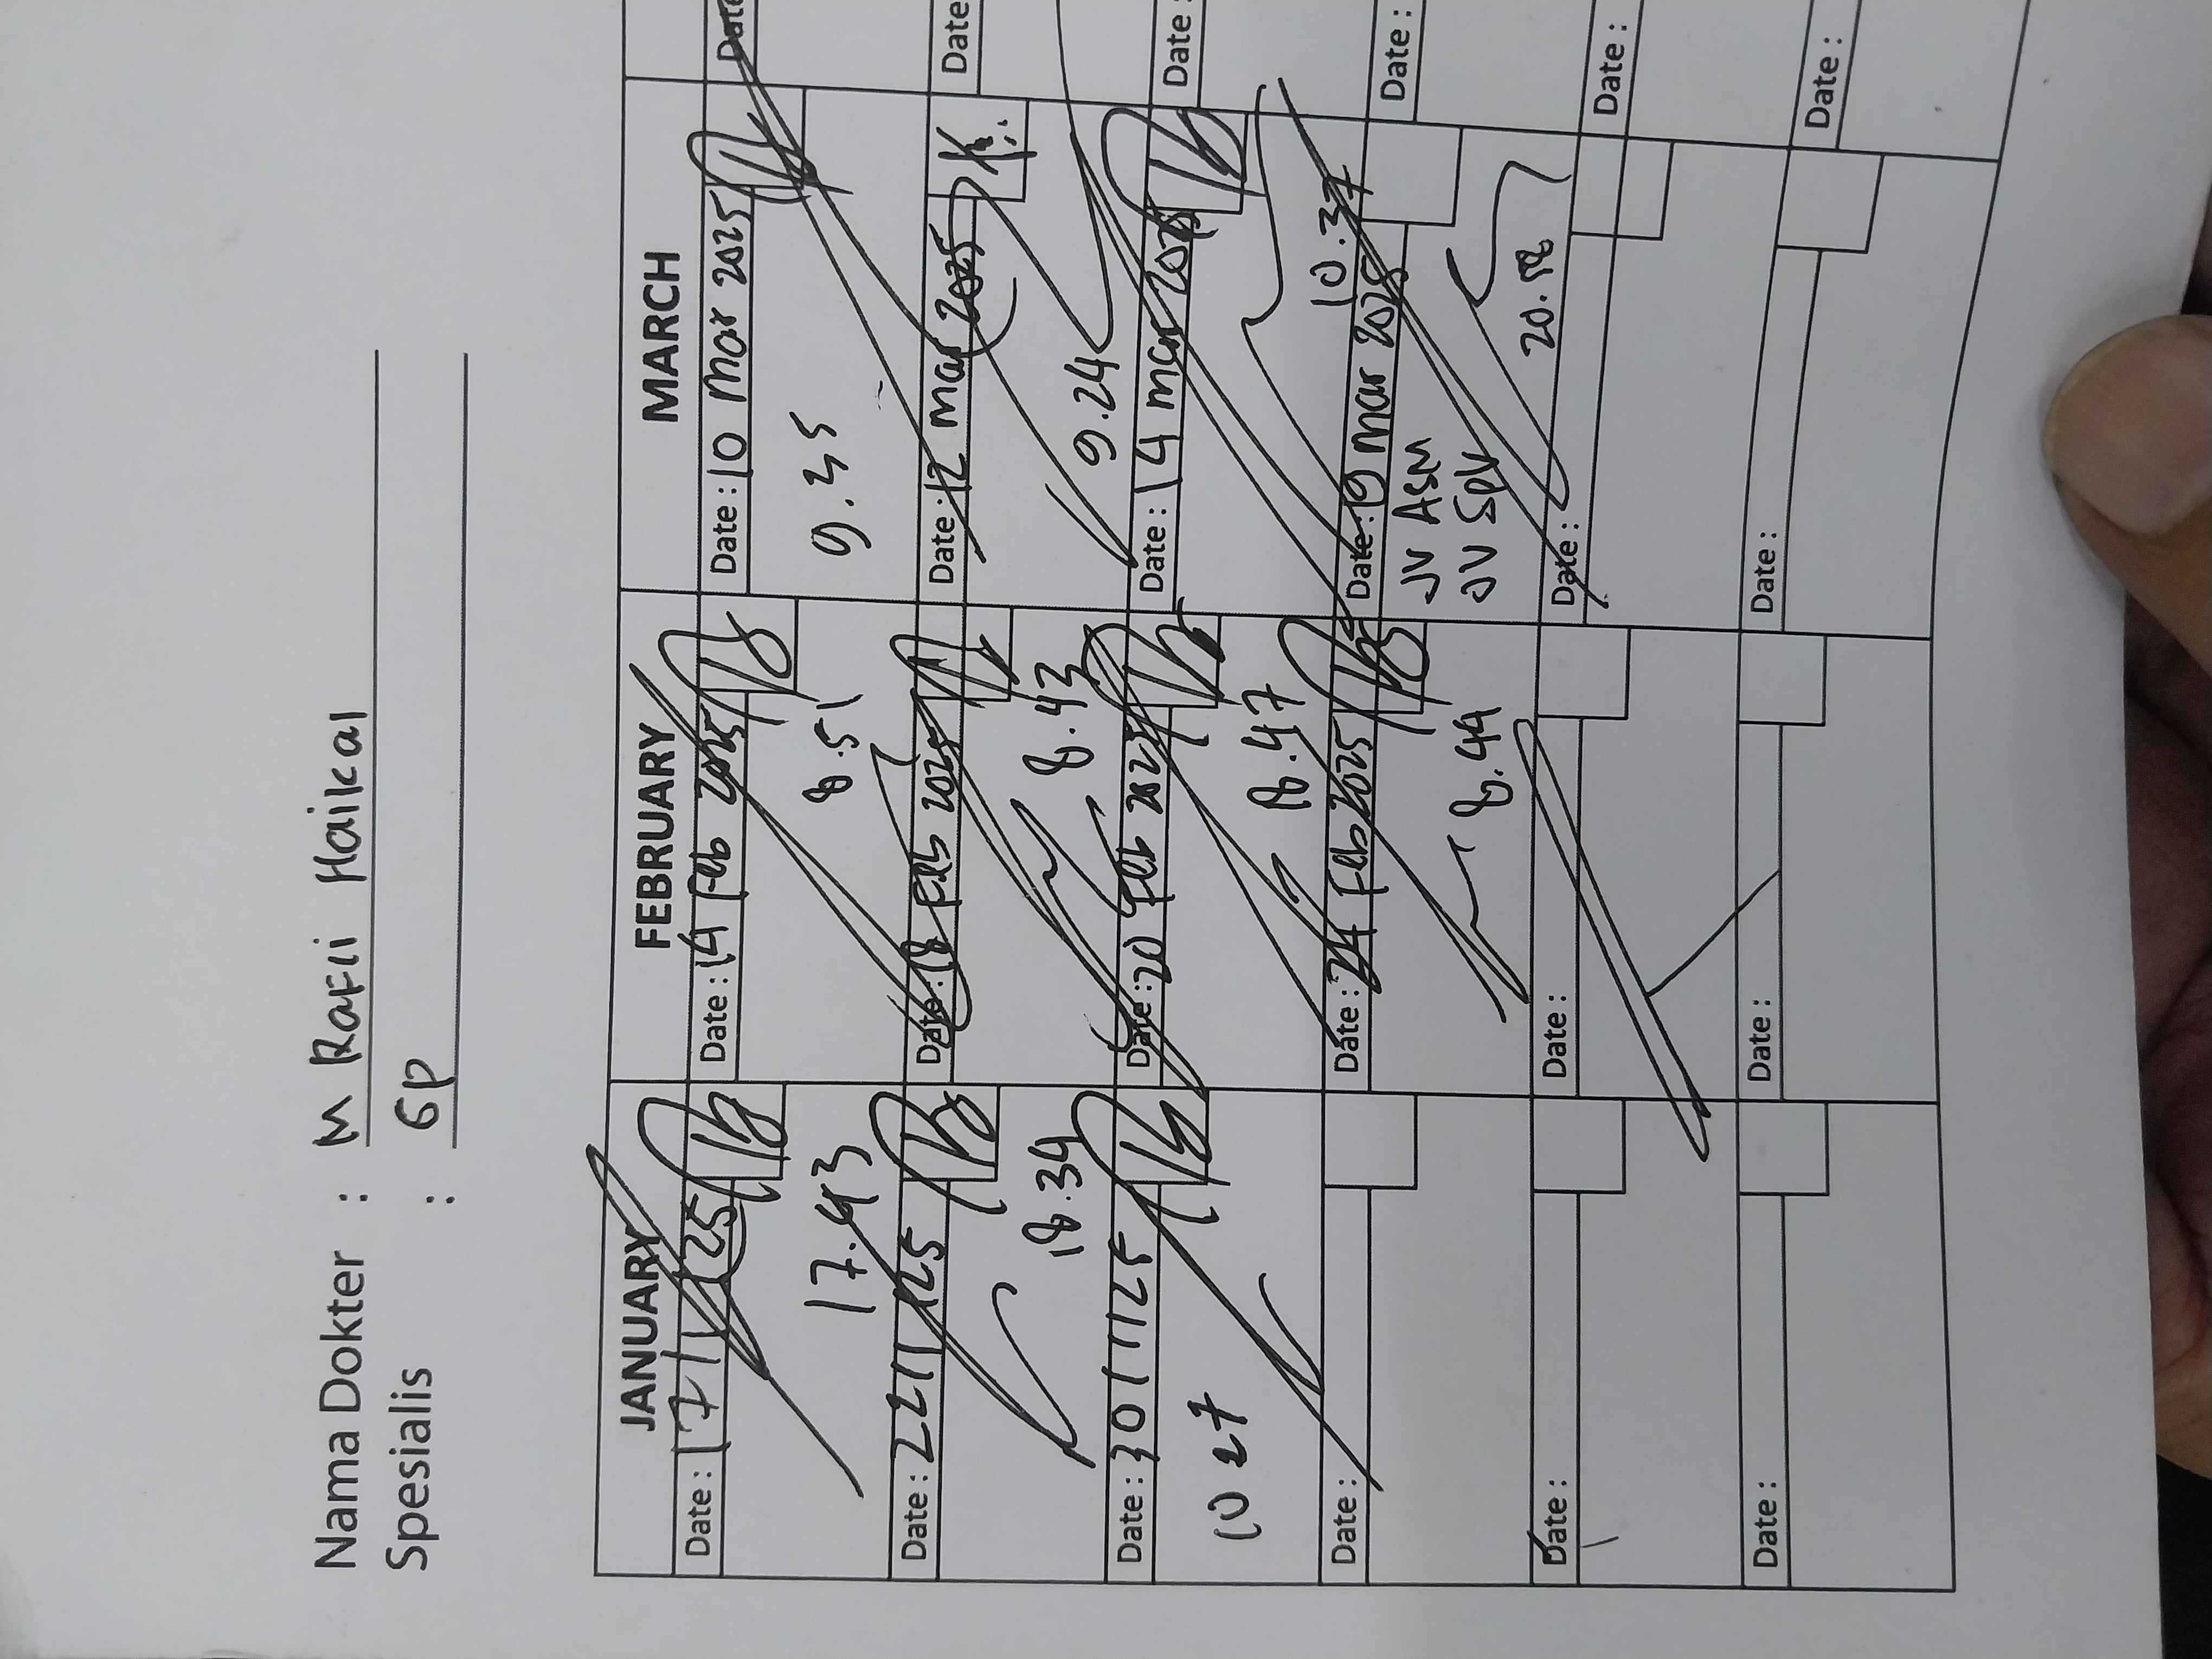 Nama Dokter : M Rafii Haikal
Spesialis : GP
JANUARY FEBRUARY MARCH
Date : 17/1/25 Date : 14 Feb 2025 Date : 10 Mar 2025 Date
17.43 8.51 9.35
Date : 22/1/25 Date : 18 Feb 2025 Date : 12 Mar 2025 K. Date
18.34 8.43 9.24
Date : 30/1/25 Date : 20 Feb 2025 Date : 14 Mar 2025 Date :
10 27 18.47 10.37
Date : Date : 24 Feb 2025 Date : 19 Mar 2025 Date :
JV ASM
8.44 JV SPV
20.18
Date : Date : Date : Date :
Date : Date : Date : Date :